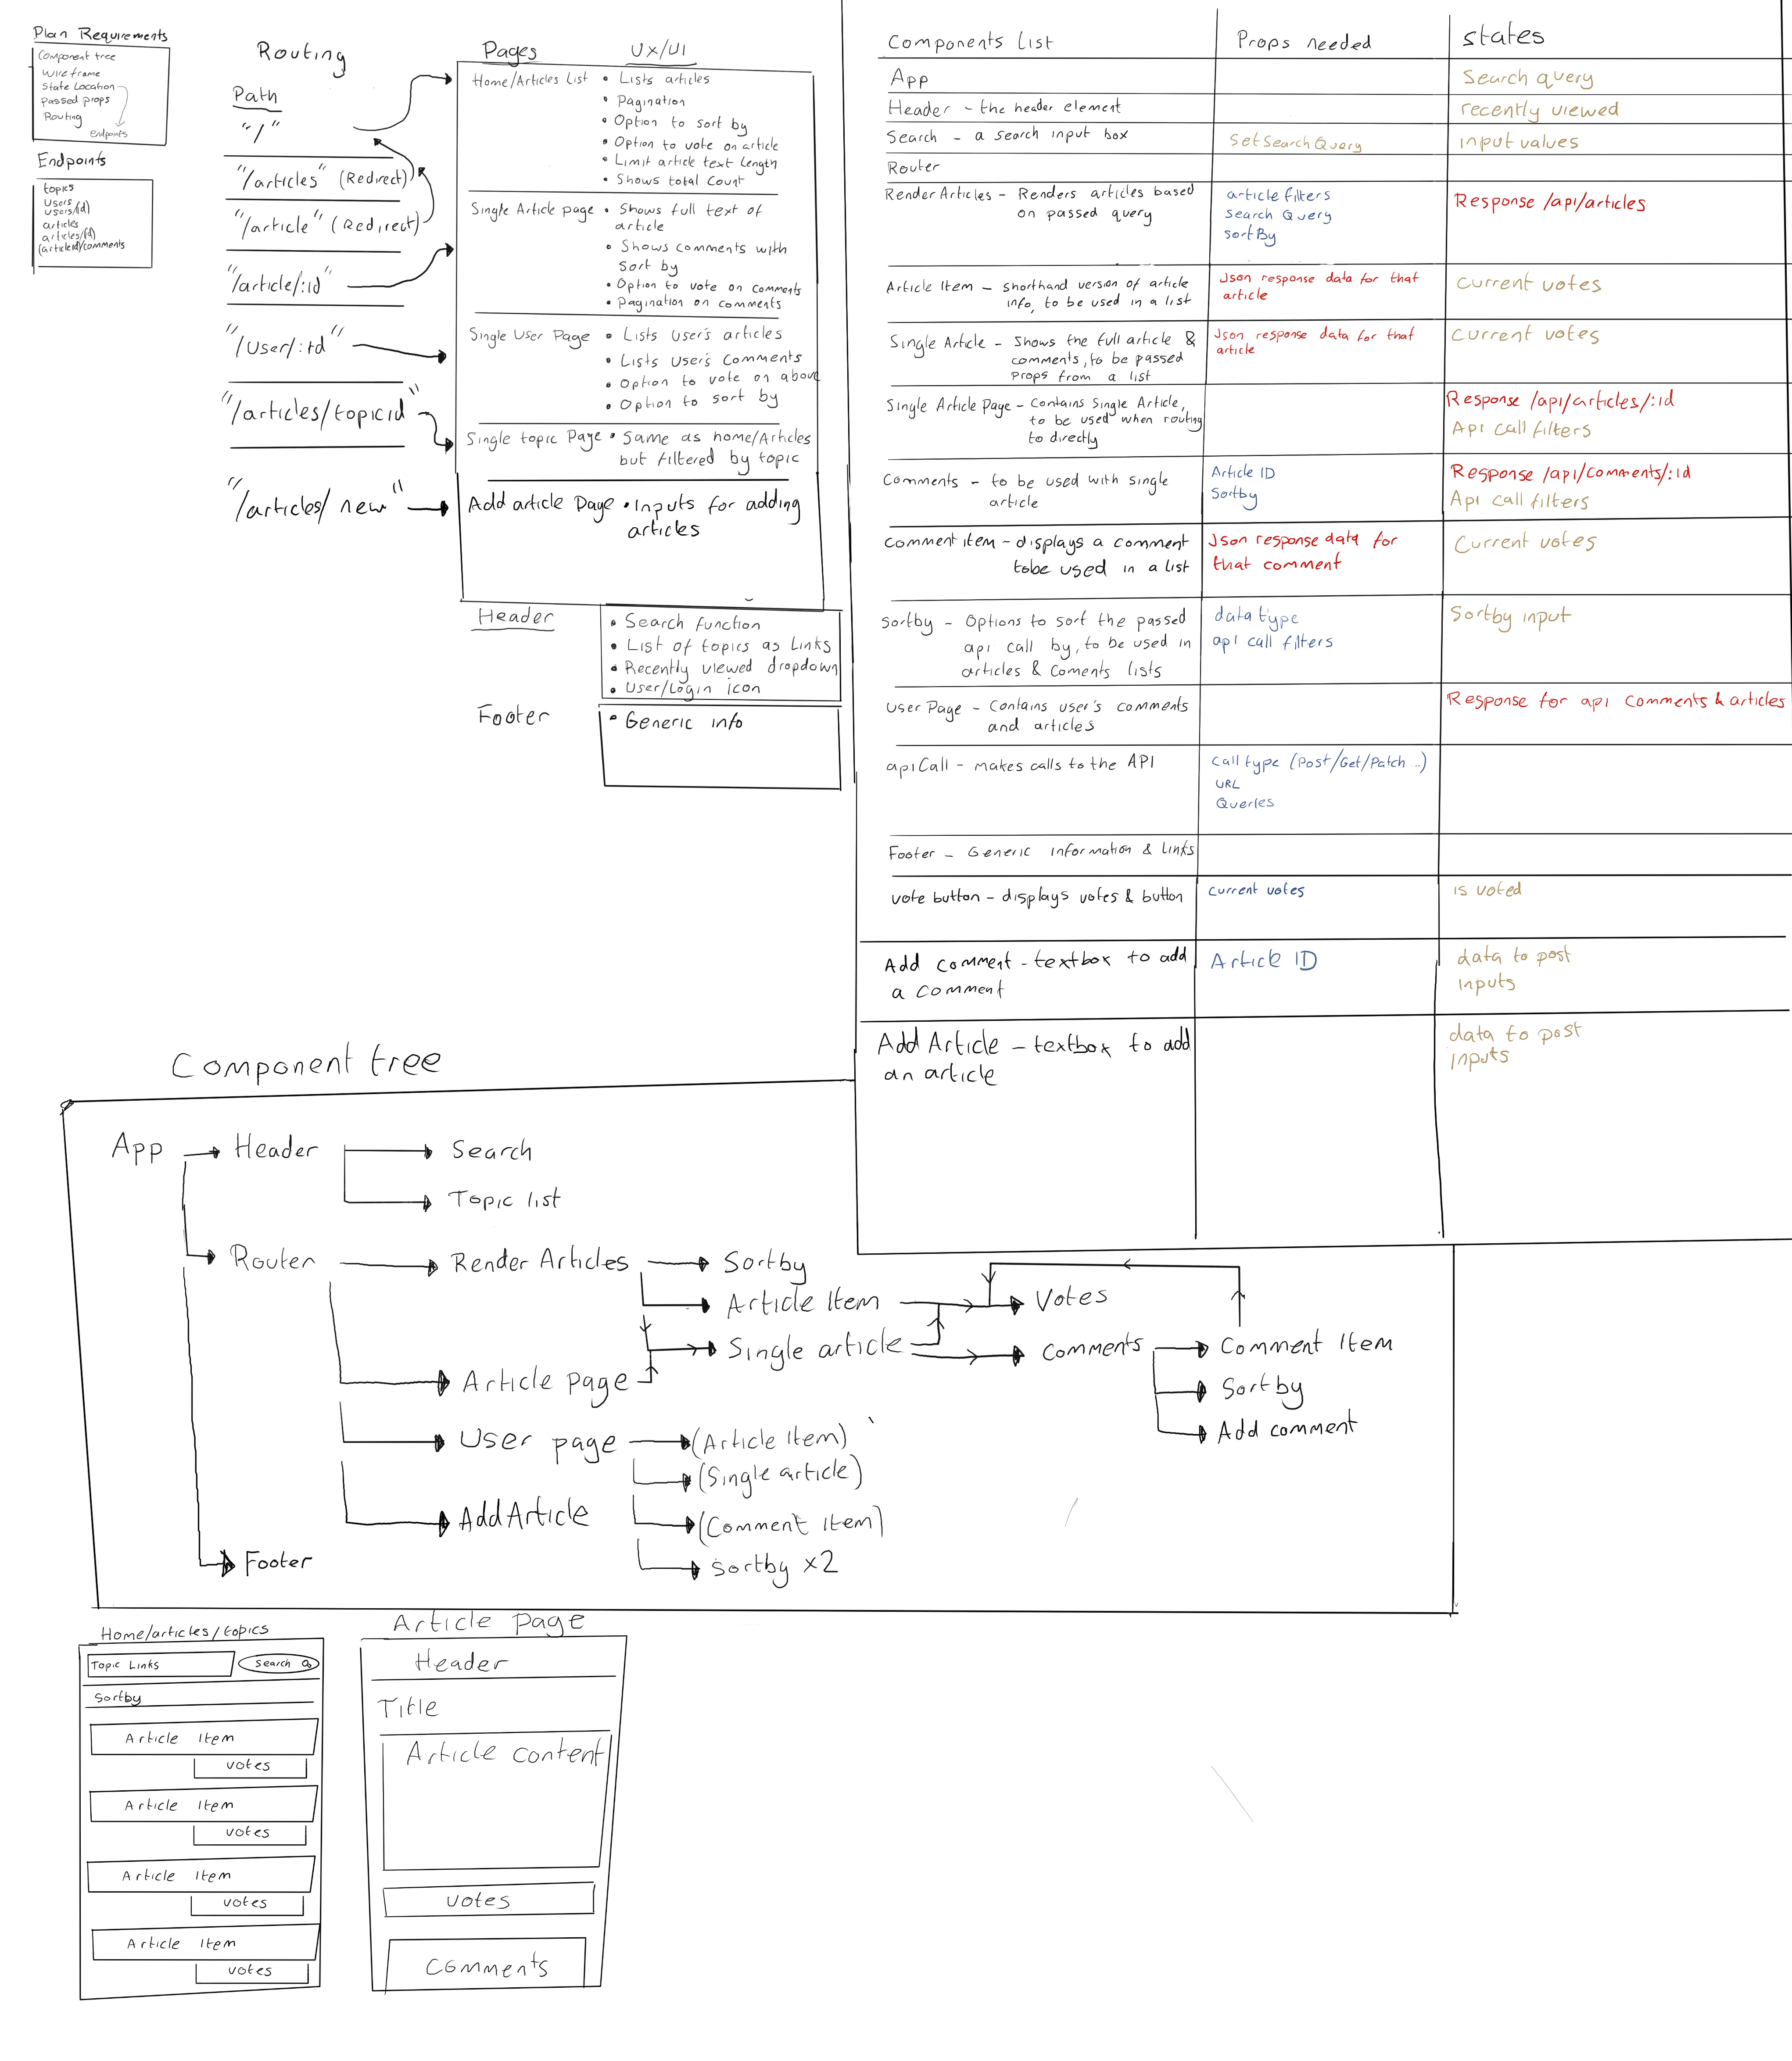 Plan Requirements
Component tree
Wireframe
State Location
Passed props
Routing
endpoints
Endpoints
topics
Users
users/(id)
articles
articles/(id)
(articleid)/comments
Routing
Path
"/"
"/articles" (Redirect)
"/article" (Redirect)
"/article/:id"
"/User/:id"
"/articles/topicid"
"/articles/new"
Pages
UX/UI
Home/Articles List
• Lists articles
• Pagination
• Option to sort by
• Option to vote on article
• Limit article text length
• Shows total count
Single Article page
• Shows full text of
article
• Shows comments with
sort by
• Option to vote on comments
• Pagination on comments
Single User Page
• Lists user's articles
• Lists User's Comments
• Option to vote on above
• Option to sort by
Single topic Page
• Same as home/Articles
but filtered by topic
Add article Page
• Inputs for adding
articles
Header
• Search function
• List of topics as Links
• Recently viewed dropdown
• User/Login icon
Footer
• Generic info
Components List
Props needed
states
App
Search query
Header - the header element
recently viewed
Search - a search input box
SetSearchQuery
input values
Router
Render Articles - Renders articles based
on passed query
article filters
Search Query
sortBy
Response /api/articles
Article Item - shorthand version of article
info, to be used in a list
Json response data for that
article
Current votes
Single Article - Shows the full article &
comments, to be passed
Props from a list
Json response data for that
article
Current votes
Single Article Page - Contains Single Article,
to be used when routing
to directly
Response /api/articles/:id
Api call filters
Comments - to be used with single
article
Article ID
Sortby
Response /api/comments/:id
Api call filters
Comment item - displays a comment
tobe used in a list
Json response data for
that comment
Current votes
Sortby - Options to sort the passed
api call by, to be used in
articles & Coments lists
data type
api call filters
Sortby input
User Page - Contains user's comments
and articles
Response for api comments & articles
apiCall - makes calls to the API
Call type (Post/Get/Patch...)
URL
Queries
Footer - Generic information & Links
vote button - displays votes & button
Current votes
is voted
Add comment - textbox to add
a comment
Article ID
data to post
inputs
Add Article - textbox to add
an article
data to post
inputs
Component tree
App
Header
Search
Topic list
Router
Render Articles
Sortby
Article Item
Votes
Single article
Comments
Comment Item
Article page
Sortby
Add comment
User page
(Article Item)
(Single article)
Add Article
(Comment Item)
Footer
Sortby x2
Home/articles/topics
Topic Links
Search
Sortby
Article Item
votes
Article Item
votes
Article Item
votes
Article Item
votes
Article Page
Header
Title
Article content
votes
Comments